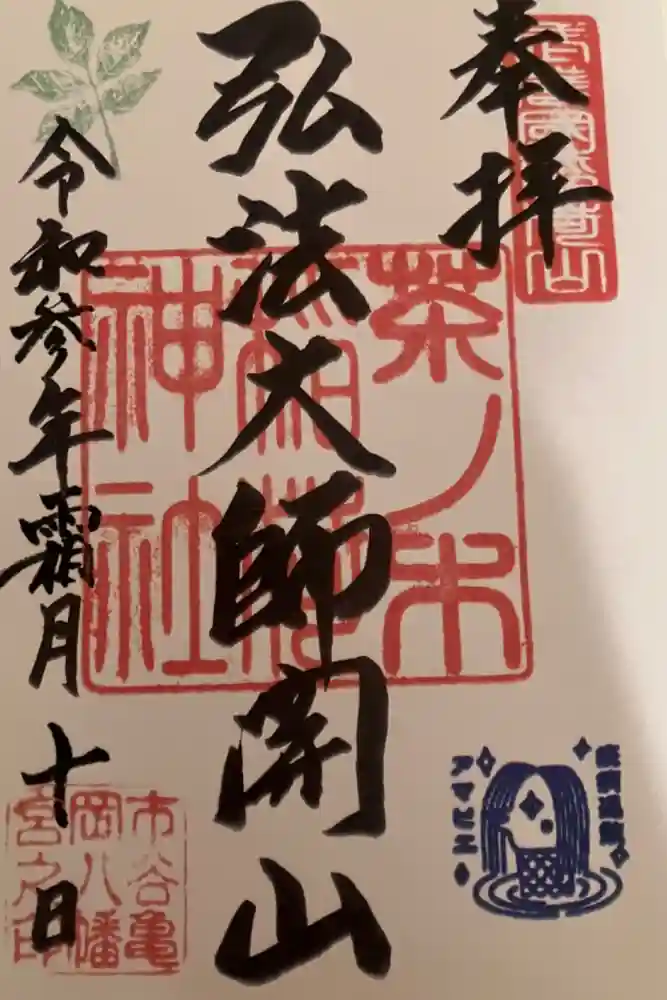 奉拝
弘法大師開山
令和参年霜月十日
茶ノ木
稲荷
神社
市谷亀
岡八幡
宮之印
アマビエ